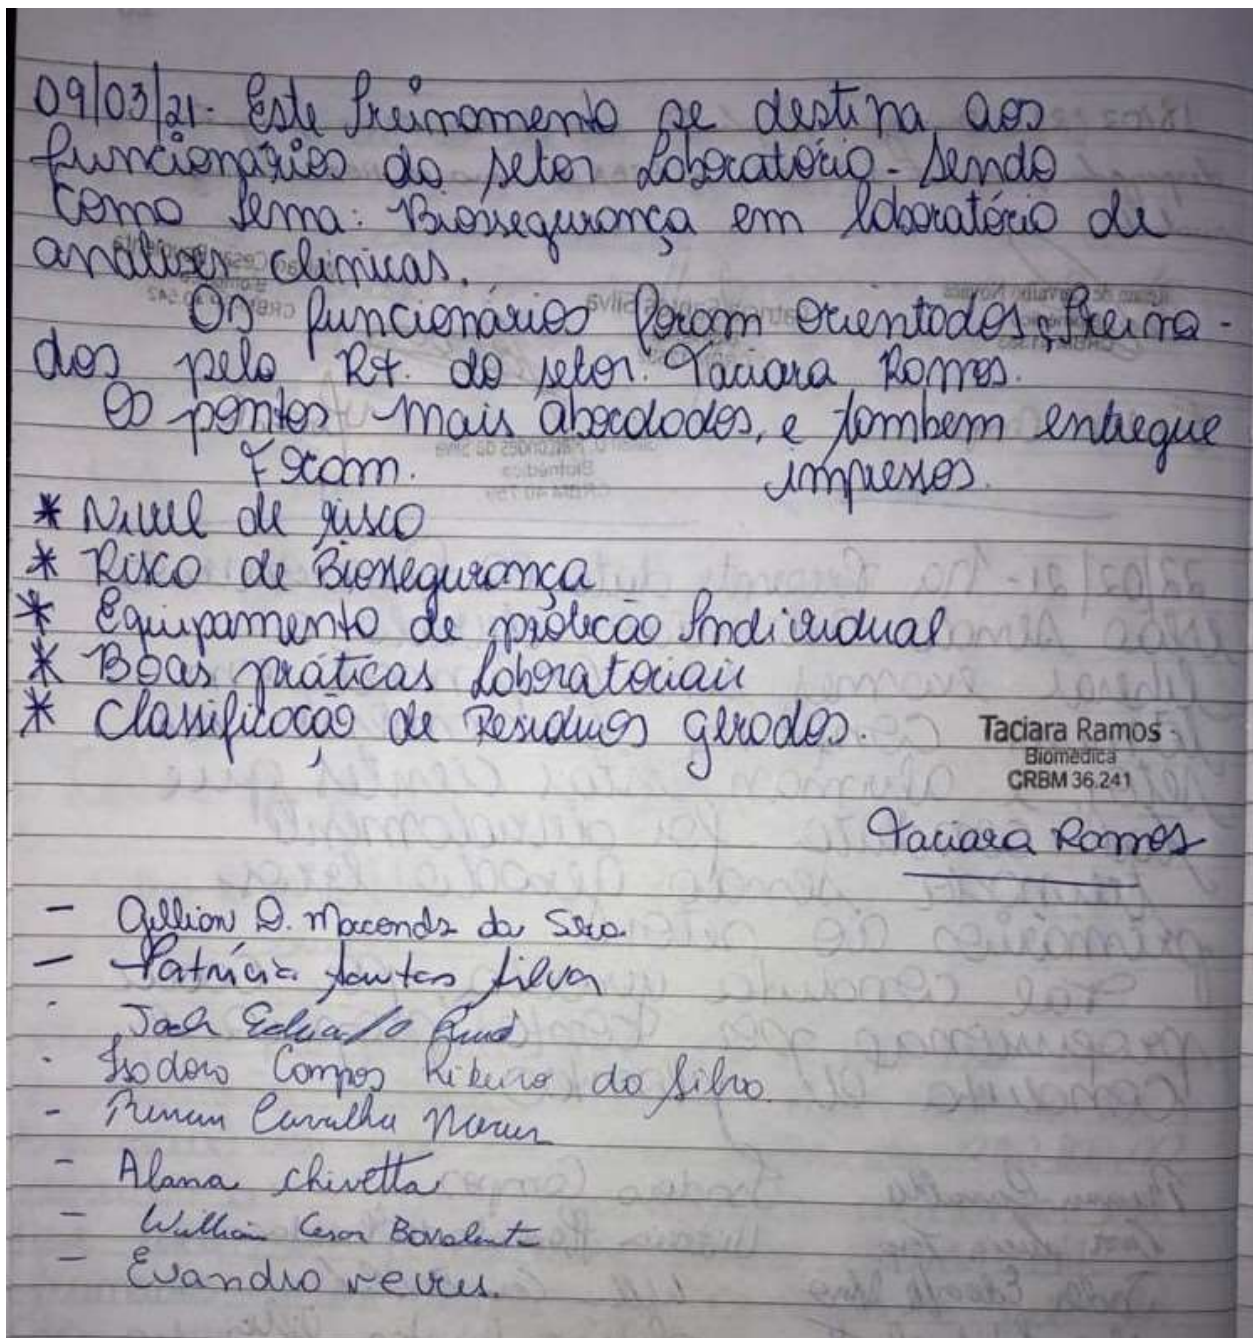 09/03/21- Este treinamento se destina aos
funcionários do setor Laboratório - Sendo
como tema: Biossegurança em laboratório de
análises clinicas.
Os funcionários foram orientados, treina-
dos pela Rt. do setor. Taciara Ramos.
Os pontos mais abordados, e tambem entregue
Foram. impressos.
* Nivel de risco
* Risco de Biossegurança
* Equipamento de proteção Individual
* Boas práticas Laboratoriais
* Classificação de Residuos gerados.
Taciara Ramos
Biomédica
CRBM 36.241
Taciara Ramos
- D. da
- Patrícia Santos Silva
- Eduardo
- Isodoro Campos Ribeiro da Silva
- Renan Carvalho
- Alana Chivetta
- Cesar
- Evandro neves.